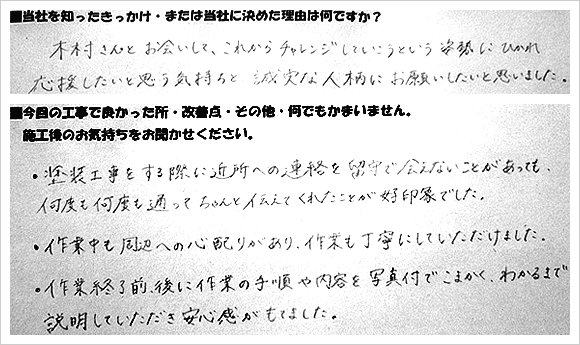 ■当社を知ったきっかけ・または当社に決めた理由は何ですか?
木村さんとお会いして、これからチャレンジしていこうという姿勢にひかれ
応援したいと思う気持ちと誠実な人柄にお願いしたいと思いました。
■今回の工事で良かった所・改善点・その他・何でもかまいません。
施工後のお気持ちをお聞かせください。
・塗装工事をする際に近所への連絡を留守で会えないことがあっても、
何度も何度も通ってちゃんと伝えてくれたことが好印象でした。
・作業中も周辺への心配りがあり、作業も丁寧にしていただけました。
・作業終了前、後に作業の手順や内容を写真付でこまかく、わかるまで
説明していただき安心感がもてました。